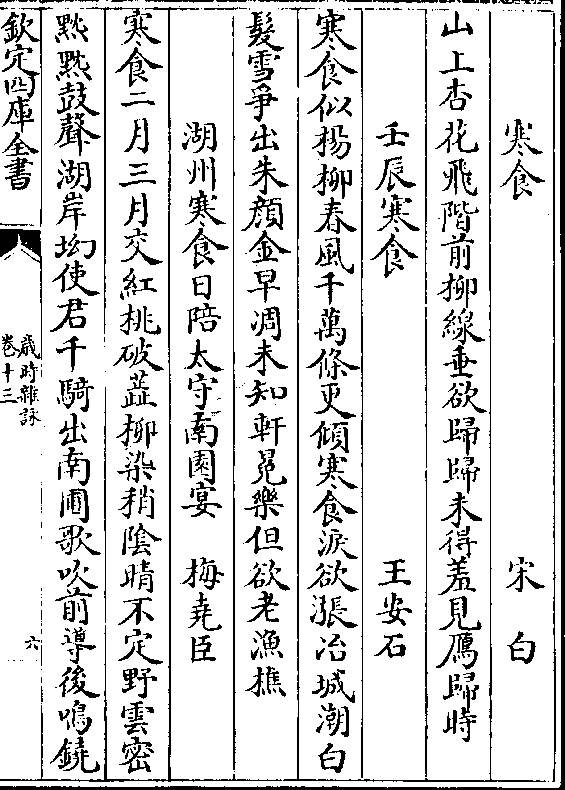 寒食　宋白
山上杏花飛階前柳線垂欲歸歸未得羞見鴈歸時
壬辰寒食　王安石
寒食似楊柳春風千萬條更傾寒食淚欲漲冶城潮白
髮雪爭出朱顔金早凋未知軒冕樂但欲老漁樵
湖州寒食日陪太守南園宴　梅堯臣
寒食二月三月交紅桃破蘂柳染稍陰晴不定野雲密
㸃㸃鼓聲湖岸坳使君千騎出南圃歌吹前導後鳴鐃
欽定四庫全書
歲時雜詠
卷十三
六